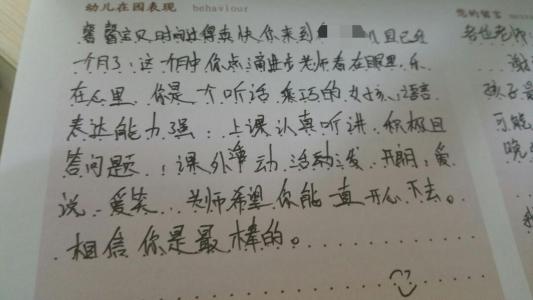 幼儿在园表现 behaviour
您的留言
馨馨宝贝时间过得真快你来到 几且已经
一个月了，这一个月中你点滴进步老师看在眼里，乐
在心里，你是一个听话乖巧的女孩，语言
表达能力强，上课认真听讲，积极回
答问题，课外活动活泼、开朗、爱
说、爱笑，老师希望你能一直开心下去。
相信你是最棒的。
各位老师：
谢
孩子最
可能
晚
我